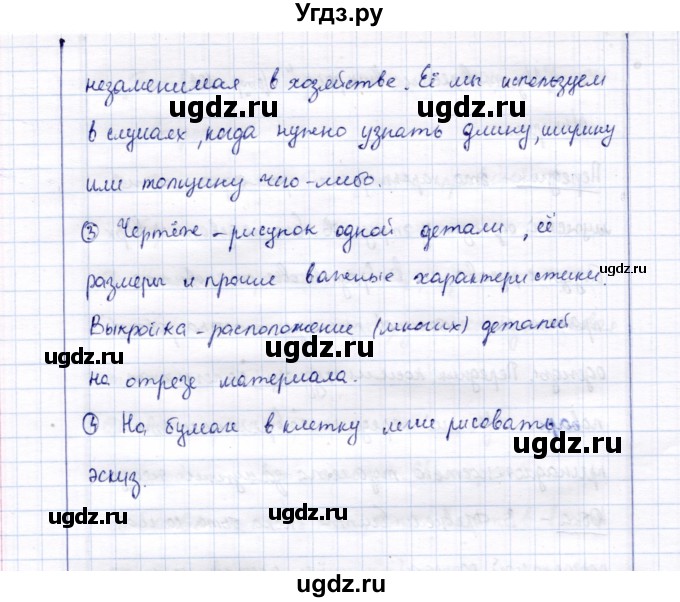 Угдз.ру
незаменимая в хозяйстве. Её мы используем
в случаях, когда нужно узнать длину, ширину
или толщину чего-либо.
③ Чертёж - рисунок одной детали, её
размеры и прочие важные характеристики.
Выкройка - расположение (многих) деталей
на отрезе материала.
④ На бумаге в клетку легче рисовать
эскиз.
ugdz.ru ugdz.ru
ugdz.ru ugdz.ru
ugdz.ru
ugdz.ru ugdz.ru
ugdz.ru ugdz.ru
ugdz.ru ugdz.ru
ugdz.ru
ugdz.ru ugdz.ru
ugdz.ru